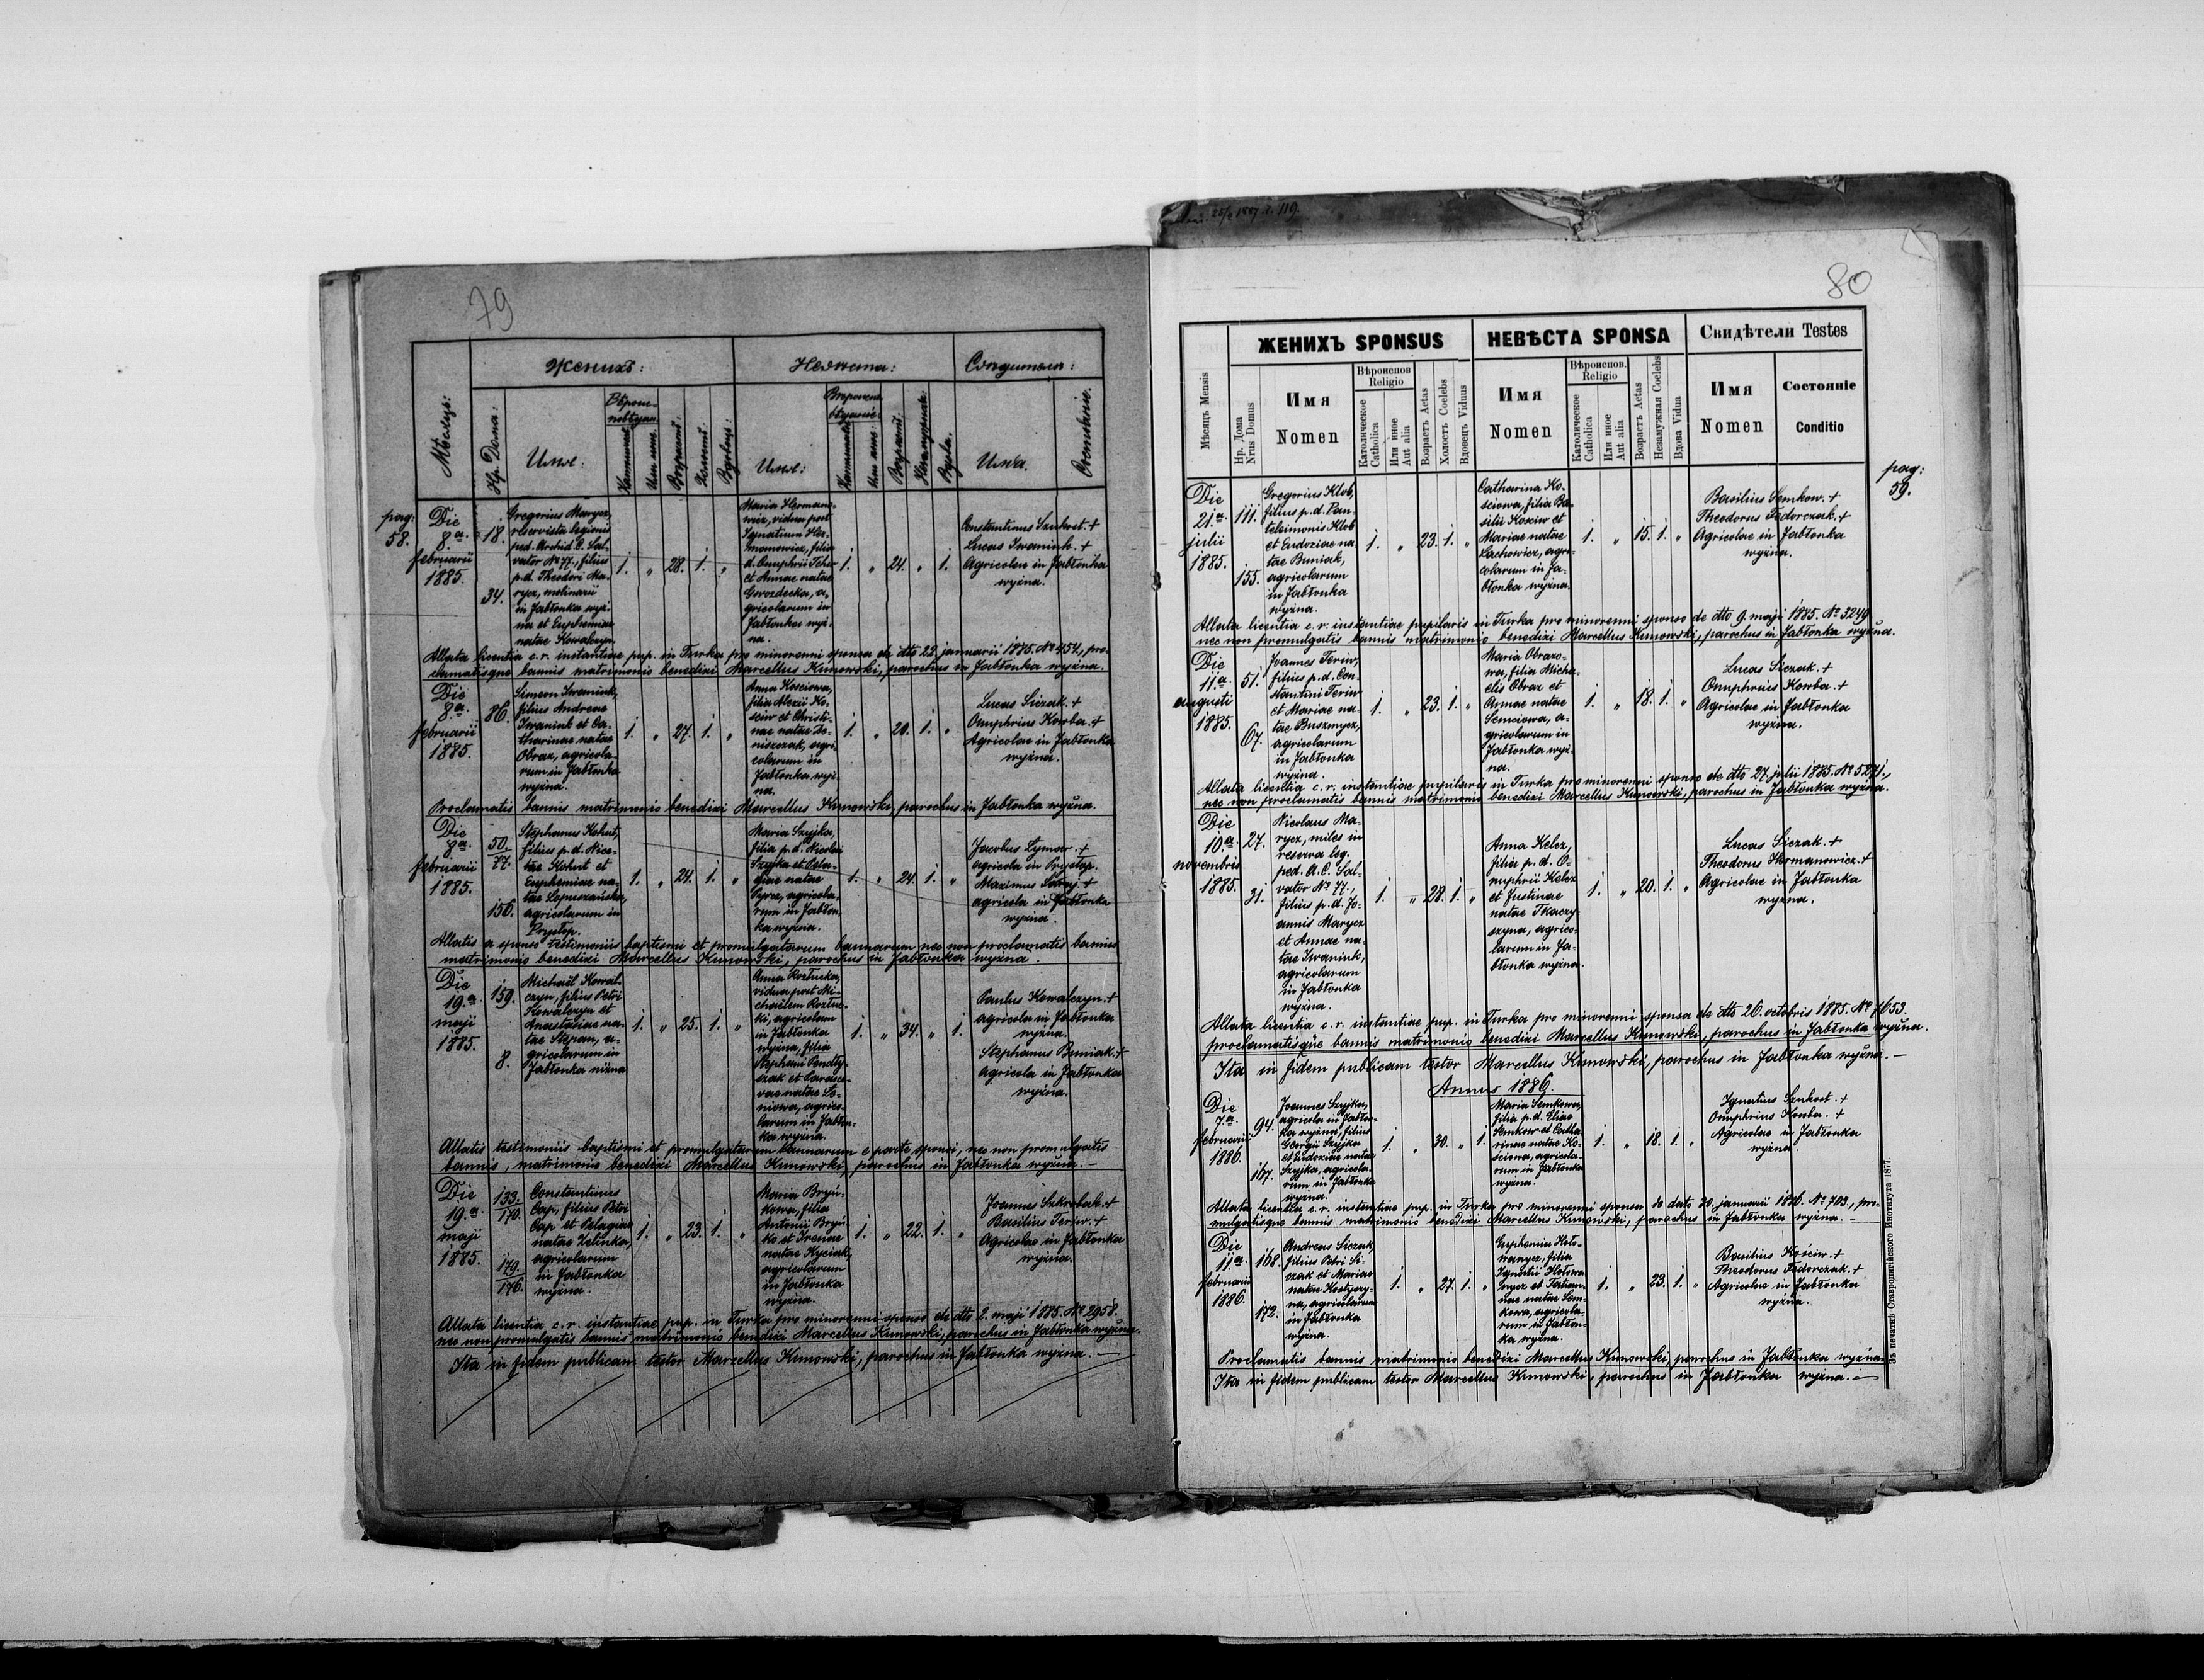 79
Женихъ:
Невѣста:
Свидители:
Мѣсяцъ:
Нр. Дома:
Имя:
Возрастъ:
Имя:
Имя.
pag:
58.
Die
8.ª
februarii
1885.
18.
34.
Gregorius Marycz,
reservista legionis
ped. Archid. L. Sal-
vator Nº 77., filius
p.d. Theodori Ma-
rycz, molinarii
in Jabłonka wyż-
na et Euphemiae
natae Kowalczyn.
1. „ 28. 1. „
Maria Herman-
wicz, vidua post
Ignatium Her-
manowicz, filia
d. Onuphrii
et Annae natae
Gwozdecka, a-
gricolarum in
Jabłonka wyż-
na.
1. „ 24. „ 1.
Constantinus Sznkost. +
Lucas Iwaniuk. +
Agricolae in Jabłonka
wyżna.
Allata licentia c.r. instantiae pup. in Turka pro minorenni sponsa de dto 22. januarii 1885. Nº 454, pro-
clamatisque bannis matrimonio benedixi Marcellus Kunowski, parochus in Jabłonka wyżna.
Die
8.ª
februarii
1885.
86.
Simeon Iwaniuk,
filius Andreae
Iwaniuk et Ca-
tharinae natae
Obraz, agricola-
rum in Jabłonka
wyżna.
1. „ 27. 1. „
Anna Kosciowa,
filia Alexii Ko-
sciw et Christi-
nae natae Fe-
niszczak, agri-
colarum in
Jabłonka wyż-
na.
1. „ 20. 1. „
Lucas Siczak. +
Onuphrius Kowba. +
Agricolae in Jabłonka
wyżna.
Proclamatis bannis matrimonio benedixi Marcellus Kunowski, parochus in Jabłonka wyżna.
Die
8ª.
februarii
1885.
50.
77.
156.
Stephanus Kohut,
filius p.d. Nice-
tae Kohut et
Euphemiae na-
tae Lopuszańska,
agricolarum in
Przysłop.
1. „ 24. 1. „
Maria Szyjka,
filia p.d. Nicolai
Szyjka et Pela-
giae natae
Pyrcz, agricola-
rum in Jabłon-
ka wyżna.
1. „ 24. 1. „
Jacobus Lymar. +
agricola in Przysłop.
Maximus +
agricola in Jabłonka
wyżna.
Allatis a sponso testimoniis baptismi et promulgatarum bannarum nec non proclamatis bannis
matrimonio benedixi Marcellus Kunowski, parochus in Jabłonka wyżna.
Die
19.ª
maji
1885.
159.
8.
Michaël Kowal-
czyn, filius Petri
Kowalczyn et
Anastasiae na-
tae Stepan, a-
gricolarum in
Jabłonka niżna
1. „ 25. 1. „
Anna Rozłucka,
vidua post Mi-
chaëlem Rozłuc-
ki, agricolam
in Jabłonka
wyżna, filia
Stephani
szak et Parasce-
vae natae
niowa, agrico-
larum in Jabłon-
ka wyżna.
1. „ 34. „ 1.
Paulus Kowalczyn. +
agricola in Jabłonka
wyżna.
Stephanus Buniak. +
agricola in Jabłonka
wyżna.
Allatis testimoniis baptismi et promulgatarum bannarum e parte sponsi, nec non promulgatis
bannis, matrimonio benedixi Marcellus Kunowski, parochus in Jabłonka wyżna. —
Die
19.ª
maji
1885.
133.
170.
179.
176.
Constantinus
Cap, filius Petri
Cap et Pelagiae
natae Zelinka,
agricolarum
in Jabłonka
wyżna.
1. „ 23. 1. „
Maria Bryń-
kowa, filia
Antonii Bryń-
ko et Irenae
natae Kyciak,
agricolarum
in Jabłonka
wyżna.
1. „ 22. 1. „
Joannes Szkrobak. +
Basilius Teriw. +
Agricolae in Jabłonka
wyżna.
Allata licentia c.r. instantiae pup. in Turka pro minorenni sponso de dto 2. maji 1885. Nº 2958.
nec non promulgatis bannis matrimonio benedixi Marcellus Kunowski, parochus in Jabłonka wyżna.
Ita in fidem publicam testor Marcellus Kunowski, parochus in Jabłonka wyżna. —
25/2 1887. 119.
80
ЖЕНИХЪ SPONSUS
НЕВѢСТА SPONSA
Свидѣтели Testes
Мѣсяцъ Mensis
Нр. Дома
Nrus Domus
Имя
Nomen
Вѣроиспов.
Religio
Католическое
Catholica
Или иное
Aut alia
Возрастъ Aetas
Холостъ Coelebs
Вдовецъ Viduus
Имя
Nomen
Вѣроиспов.
Religio
Католическое
Catholica
Или иное
Aut alia
Возрастъ Aetas
Незамужная Coelebs
Вдова Vidua
Имя
Nomen
Состояніе
Conditio
pag:
59.
Die
21.ª
julii
1885.
111.
155.
Gregorius Klob,
filius p.d. Pan-
teleimonis Klob
et Eudoxiae na-
tae Buniak,
agricolarum
in Jabłonka
wyżna.
1. „ 23. 1. „
Catharina Ko-
sciowa, filia Ba-
silii Kosciw et
Mariae natae
Lachowicz, agri-
colarum in Ja-
błonka wyżna.
1. „ 15. 1. „
Basilius Semkow. +
Theodorus Fedorczak. +
Agricolae in Jabłonka
wyżna.
Allata licentia c.r. instantiae pupilaris in Turka pro minorenni sponso de dto 9. maji 1885. Nº 3249
nec non promulgatis bannis matrimonio benedixi Marcellus Kunowski, parochus in Jabłonka wyżna.
Die
11.ª
augusti
1885.
51.
67.
Joannes Teriw,
filius p.d. Con-
stantini Teriw
et Mariae na-
tae Buszmycz,
agricolarum
in Jabłonka
wyżna.
1. „ 23. 1. „
Maria Obrazo-
wa, filia Micha-
elis Obraz et
Annae natae
Semciowa, a-
gricolarum in
Jabłonka wyż-
na.
1. „ 18. 1. „
Lucas Siczak. +
Onuphrius Kowba. +
Agricolae in Jabłonka
wyżna.
Allata licentia c.r. instantiae pupilaris in Turka pro minorenni sponso de dto 27. julii 1885. Nº 5271.,
nec non proclamatis bannis matrimonio benedixi Marcellus Kunowski, parochus in Jabłonka wyżna.
Die
10.ª
novembris
1885.
27.
31.
Nicolaus Ma-
rycz, miles in
reserva leg.
ped. A. L. Sal-
vator Nº 77.,
filius p.d. Jo-
annis Marycz
et Annae na-
tae Iwaniuk,
agricolarum
in Jabłonka
wyżna.
1. „ 28. 1. „
Anna Kelez,
filia p.d. O-
nuphrii Kelez
et Justinae
natae Tkaczy-
szyna, agrico-
larum in Ja-
błonka wyżna.
1. „ 20. 1. „
Lucas Siczak. +
Theodorus Hermanowicz. +
Agricolae in Jabłonka
wyżna.
Allata licentia c.r. instantiae pup. in Turka pro minorenni sponsa de dto 26. octobris 1885. Nº 7653.
proclamatisque bannis matrimonio benedixi Marcellus Kunowski, parochus in Jabłonka wyżna.
Ita in fidem publicam testor Marcellus Kunowski, parochus in Jabłonka wyżna. —
Annus 1886.
Die
7.ª
februarii
1886.
94.
167.
Joannes Szyjka,
agricola in Jabłon-
ka wyżna, filius
Georgii Szyjka
et Eudoxiae natae
Szyjka, agricola-
rum in Jabłonka
wyżna.
1. „ 30. „ 1.
Maria Semkowa,
filia p.d. Eliae
Semkow et Catha-
rinae natae Ko-
sciowa, agricola-
rum in Jabłonka
wyżna.
1. „ 18. 1. „
Ignatius Sznkost. +
Onuphrius Kowba. +
Agricolae in Jabłonka
wyżna.
Allata licentia c.r. instantiae pup. in Turka pro minorenni sponsa de dato 30. januarii 1886. Nº 703., pro-
mulgatisque bannis matrimonio benedixi Marcellus Kunowski, parochus in Jabłonka wyżna. —
Die
11.ª
februarii
1886.
168.
172.
Andreas Siczak,
filius Petri Si-
czak et Mariae
natae Kostyszy-
na, agricolarum
in Jabłonka
wyżna.
1. „ 27. 1. „
Euphemia Hoło-
wanycz, filia
Ignatii Hołowa-
nycz et Tatian-
nae natae Sem-
kowa, agricola-
rum in Jabłon-
ka wyżna.
1. „ 23. 1. „
Basilius Kościw. +
Theodorus Fedorczak. +
Agricolae in Jabłonka
wyżna.
Proclamatis bannis matrimonio benedixi Marcellus Kunowski, parochus in Jabłonka wyżna.
Ita in fidem publicam testor Marcellus Kunowski, parochus in Jabłonka wyżna. —
Зъ печатнѣ Ставропигійского Института 1877.